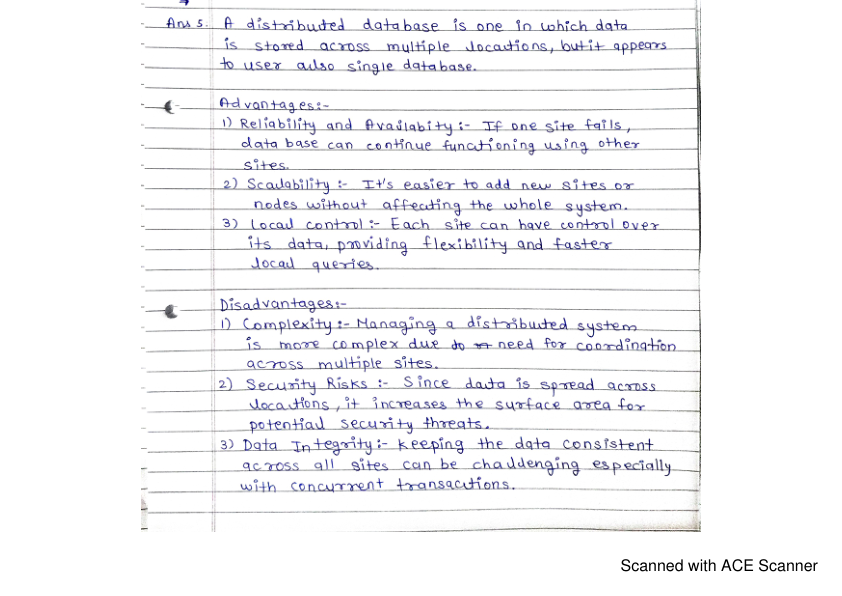 Ans 5. A distributed database is one in which data
is stored across multiple locations, but it appears
to user also single database.
Advantages:-
1) Reliability and Availabity :- If one site fails,
data base can continue functioning using other
sites.
2) Scalability :- It's easier to add new sites or
nodes without affecting the whole system.
3) Local control :- Each site can have control over
its data, providing flexibility and faster
local queries.
Disadvantages:-
1) Complexity :- Managing a distributed system
is more complex due to need for coordination
across multiple sites.
2) Security Risks :- Since data is spread across
locations, it increases the surface area for
potential security threats.
3) Data Integrity:- Keeping the data consistent
across all sites can be challenging especially
with concurrent transactions.
Scanned with ACE Scanner